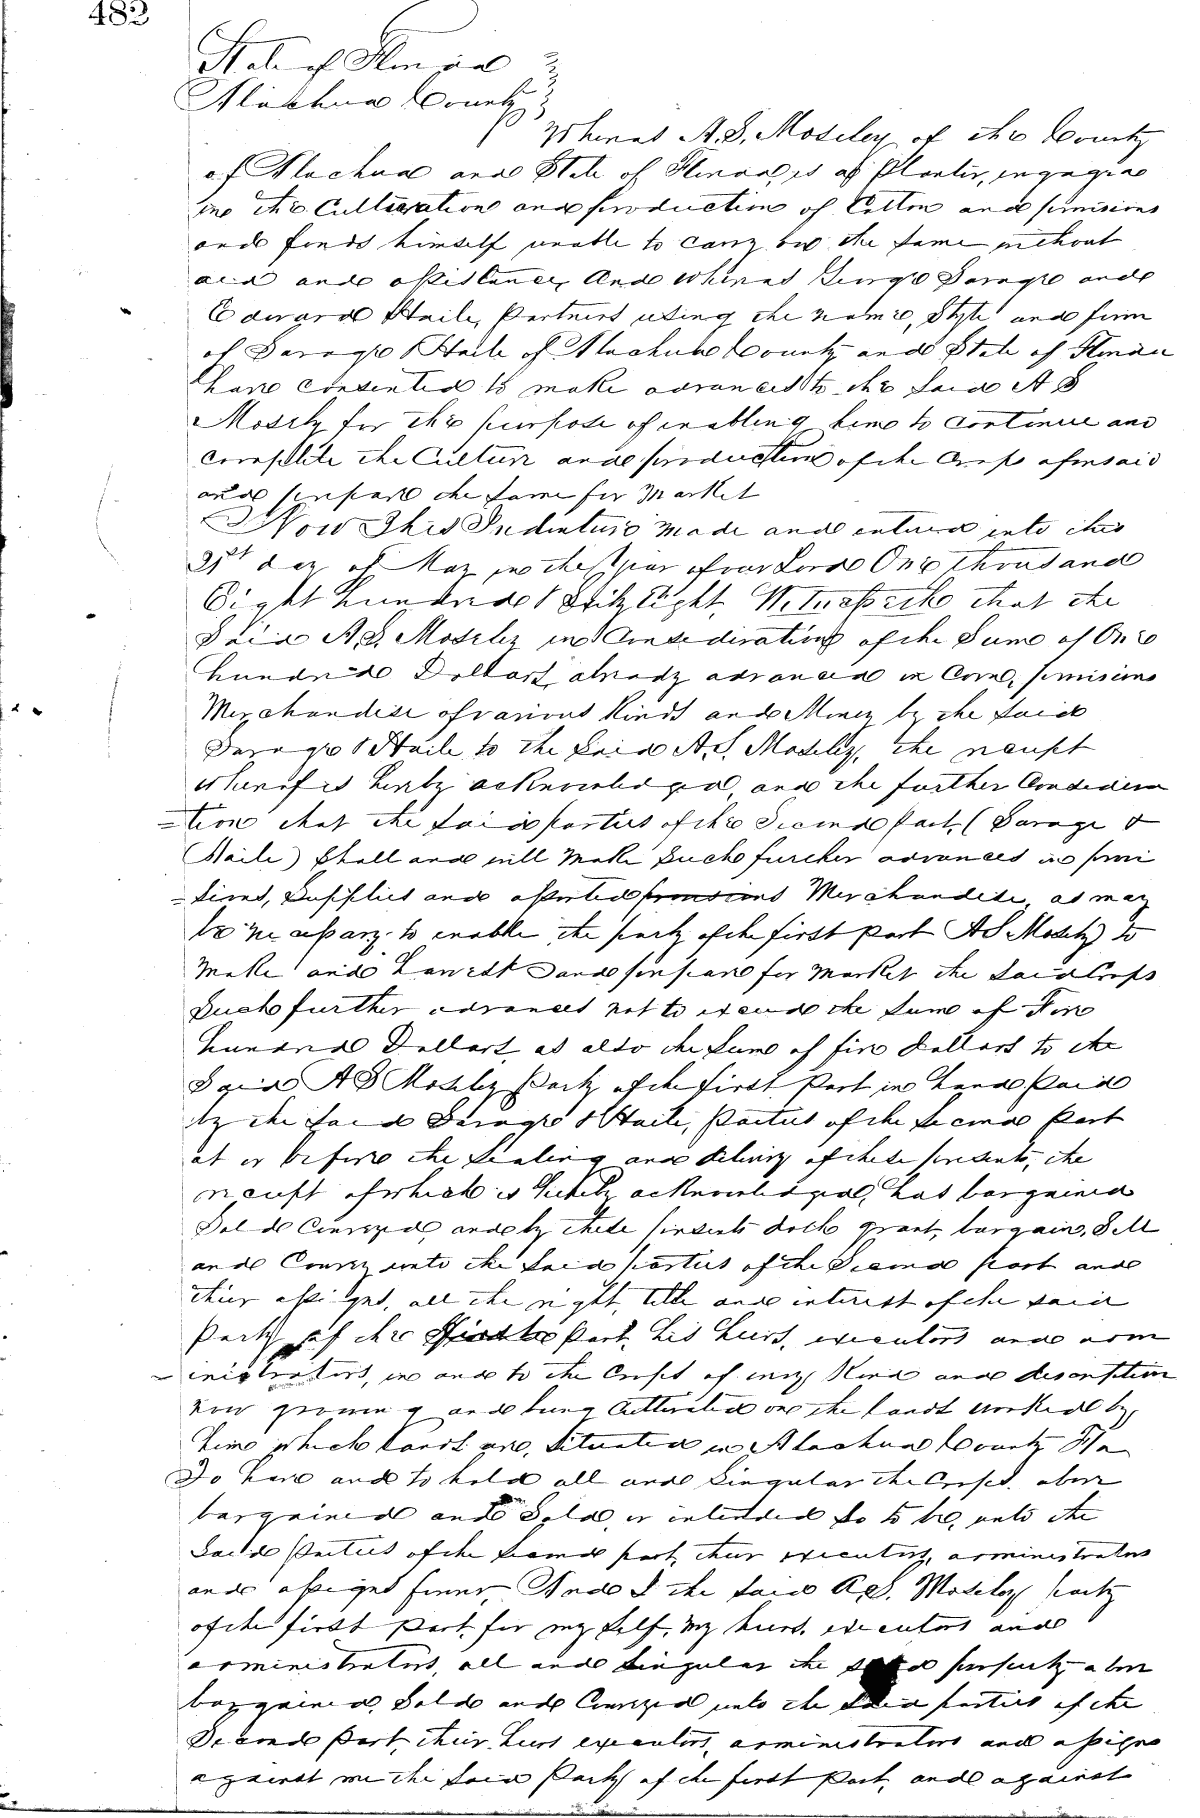 483
State of Florida
Alachua County
Whereas A. S. Moseley of the County
of Alachua and State of Florida, is a Planter, engaged
in the Cultivation and production of Cotton and provisions
and finds himself unable to carry on the same without
aid and assistance, And Whereas George Savage and
Edward Haile, Partners using the name, Style and firm
of Savage & Haile of Alachua County and State of Florida
have consented to make advances to the Said A S
Mosely for the purpose of enabling him to continue and
complete the Culture and production of the Crops aforesaid
and prepare the same for Market
Now This Indenture made and entered into this
21st day of May in the Year of our Lord One thousand
Eight hundred & Sixty Eight, Witnesseth that the
Said A. S. Moseley in Consideration of the Sum of One
hundred Dollars, already advanced in Corn, provisions
Merchandise of various Kinds and Money by the Said
Savage & Haile to the Said A. S. Moseley, the receipt
whereof is hereby acknowledged, and the further Considera
=tion that the said parties of the Second Part, (Savage &
Haile) Shall and will Make Such further advances in provi
=sions, Supplies and assorted provisions Merchandise, as may
be necessary to enable the party of the first part A S Mosely to
Make and Harvest and prepare for Market the Said Crops
Such further advances not to exceed the Sum of Five
hundred Dollars, as also the Sum of five Dollars to the
Said A S Moseley Party of the first Part in hand Paid
by the Said Savage & Haile, Parties of the Second Part
at or before the Sealing and delivery of these presents, the
receipt of which is hereby acknowledged, has bargained
Sold Conveyed, and by these presents doth grant, bargain, Sell
and Convey unto the Said parties of the Second part and
their assigns, all the right, title and interest of the said
Party of the First Part, his heirs, executors and adm
inistrators, in and to the Crops of every Kind and description
now growing and being Cultivated on the lands worked by
him which lands are, Situated in Alachua County Fla
To have and to hold all and Singular the Crops, above
bargained and Sold, or intended So to be, unto the
Said Parties of the Second part, their executors, administrators
and assigns forever, And I the Said A. S. Moseley party
of the first Part, for my self, my heirs, executors and
administrators, all and Singular the said property above
bargained, Sold and Conveyed unto the Said parties of the
Second Part, their heirs executors, administrators and assigns
against me the Said Party of the first Part, and against